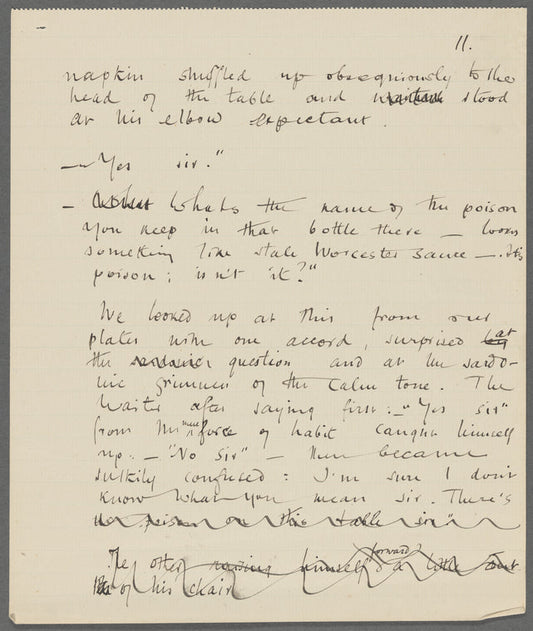 11.
napkin shuffled up obsequiously to the
head of the table and stood
at his elbow expectant.
— Yes sir."
— What Whats the name of the poison
you keep in that bottle there — looks
something like stale Worcester sauce —. Its
poison; isn't it?"
We looked up at this from our
plates with one accord, surprised by at
the question and at the sardo-
nic grimness of the calm tone. The
Waiter after saying first: — "Yes sir"
from mere force of habit caught himself
up: — "No sir" — then became
sulkily confused: I'm sure I don't
know what you mean sir. There's
no poison on this table sir"
The other raising himself forward a little out
of his chair